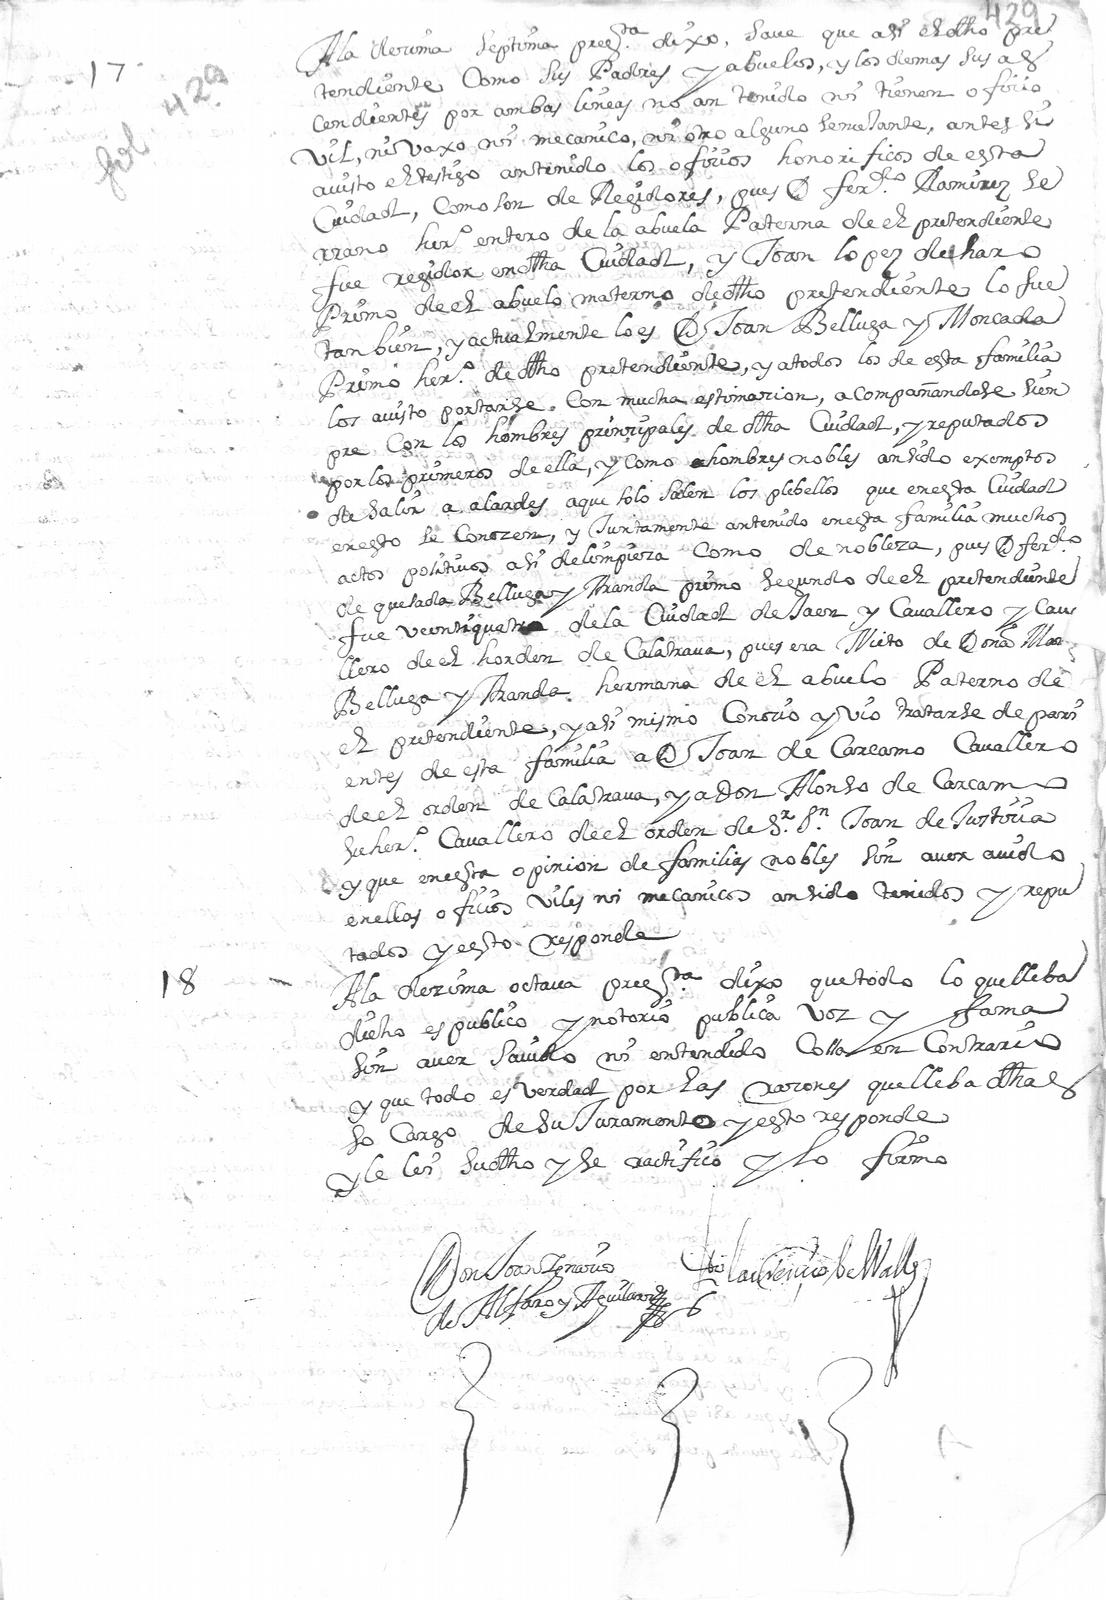 429
17
fol 429
A la dezima septima preg.ta dixo, save que assi el dho pre
tendiente Como sus Padres y abuelos, y los demas sus as
cendientes por ambas lineas no an tenido ni tienen oficio
vil, ni vaxo ni mecanico, ni otro alguno semejante, antes si
a visto el testigo an tenido los oficios honorificos de esta
Ciudad, Como son de Regidores, pues D fer.do Ramirez se
rrano her.o entero de la abuela Paterna de el pretendiente
fue regidor en dha Ciudad, y Joan lopez de haro
Primo de el abuelo materno de dho pretendiente lo fue
tanbien, y actualmente lo es D Joan Belluga y Moncada
Primo her.o de dho pretendiente, y a todos los de esta familia
los a visto portarse Con mucha estimacion, acompañandose sien
pre Con los hombres principales de dha Ciudad, y reputados
por los primeros de ella, y como a hombres nobles an sido exemptos
de salir a alardes a que solo salen los plebellos que en esta Ciudad
en esto se Conozen, y Juntamente an tenido en esta familia muchos
actos positivos assi de limpieza como de nobleza, pues D fer.do
de quesada Belluga y Aranda primo segundo de el pretendiente
fue veintiquatro de la Ciudad de Jaen y Cavallero y Cava
llero de el horden de Calatrava, pues era Nieto de Doña Mar.
Belluga y Aranda hermana de el abuelo Paterno de
el pretendiente, y assi mismo Conocio y vio tratarse de pari
entes de esta familia a D Joan de Carcamo Cavallero
de el orden de Calatrava, y a Don Alonso de Carcamo
su her.o Cavallero de el orden de S.r S.n Joan de Justicia
y que en esta opinion de familias nobles sin aver avido
en ellas oficios viles ni mecanicos an sido tenidos y repu
tados y esto responde
18
A la dezima octava preg.ta dixo que todo lo que lleba
dicho es publico y notorio publica voz y fama
sin aver savido ni entendido Cossa en Contrario
y que todo es verdad por las razones que lleba dhas
so Cargo de su Juramento y esto responde
y le lei su dho y se ratifico y lo firmo
Don Joan Ignacio
de Alfaro y Aguilar